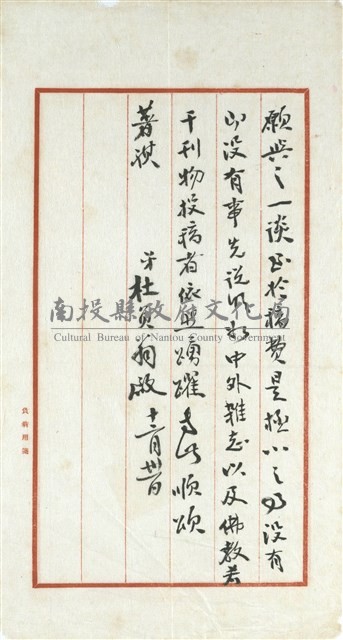 願與之一談至於稿費是極小之的沒有
也沒有事先說明於中外雜志以及佛教若
干刊物投稿者依舊踴躍專此順頌
著祺
弟杜負翁啟 十二月廿一日
負翁用箋
南投縣政府文化局
Cultural Bureau of Nantou County Government